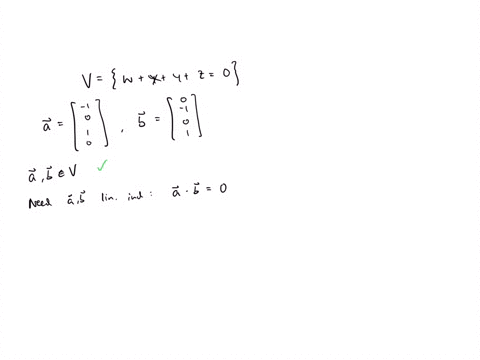 V = { w + x + y + z = 0 }
a⃗ = [ -1 0 1 0 ] , b⃗ = [ 0 -1 0 1 ]
a⃗, b⃗ ∈ V ✓
Need a⃗, b⃗ lin. ind : a⃗ · b⃗ = 0